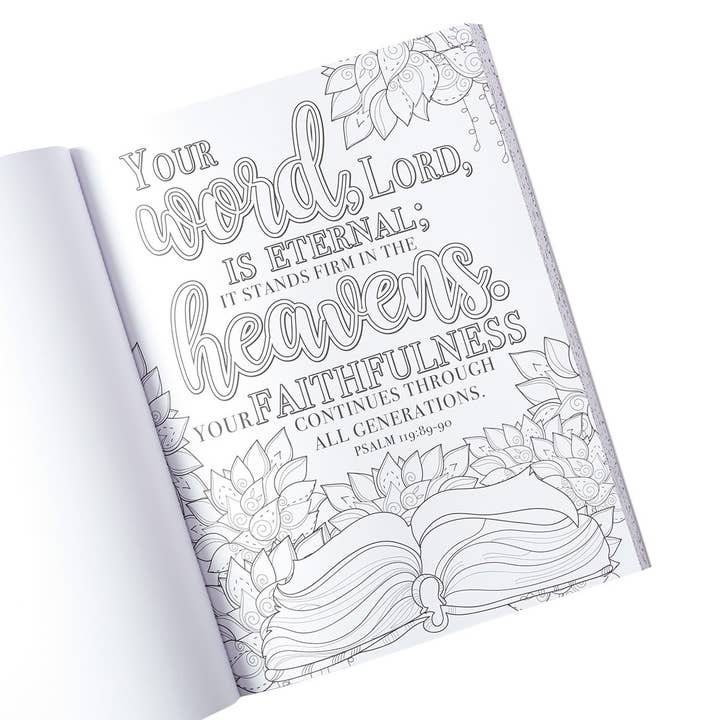 YOUR
word, LORD,
IS ETERNAL;
IT STANDS FIRM IN THE
heavens.
YOUR FAITHFULNESS
CONTINUES THROUGH
ALL GENERATIONS.
PSALM 119:89-90